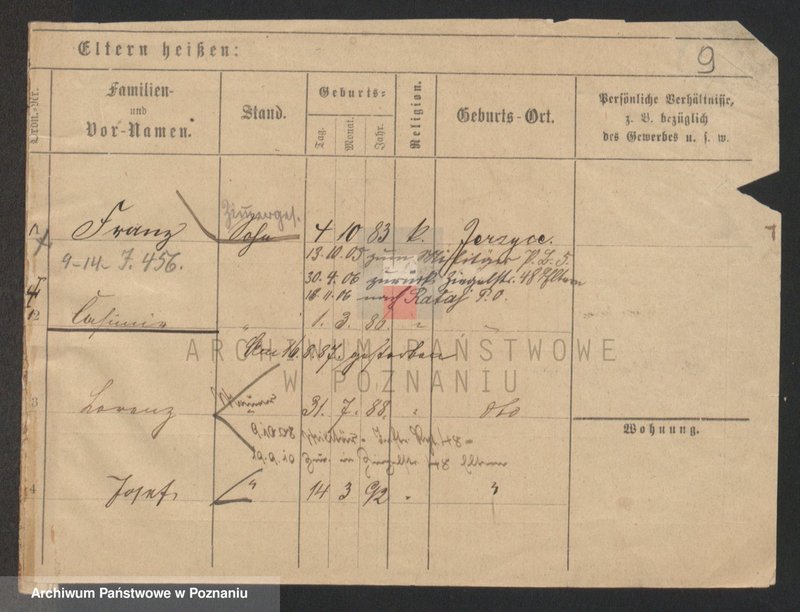 9
Eltern heißen:
Ordn.-Nr.
Familien-
und
Vor-Namen.
Stand.
Geburts-
Tag.
Monat.
Jahr.
Religion.
Geburts-Ort.
Persönliche Verhältnisse,
z. B. bezüglich
des Gewerbes u. s. w.
Zimmerges.
Franz Sohn 4 10 83 k. Jerzyce.
13.10.05 zum Militär
9-14 J. 456.
30.4.06 zurück Ziegelstr. 48 Eltern
18.11.06 nach Rataj P.O.
Casimir " 1. 3. 86. " "
Am 16. 8. 87. gestorben
ARCHIWUM PAŃSTWOWE
W POZNANIU
3 Lorenz Maurer 31. 7. 88. " dto
Wohnung.
9.10.08 Militär - Inftr. Rgt.
19.9.10 Zur. in Ziegelstr. 48 Eltern
4 Josef " 14 3 92 " "
Archiwum Państwowe w Poznaniu